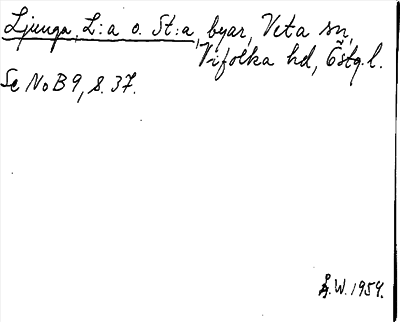 Ljunga, L:a o. St:a, byar, Veta sn,
Vifolka hd, Östg.l.
Se NoB 9, s. 37.
Å.W. 1959.